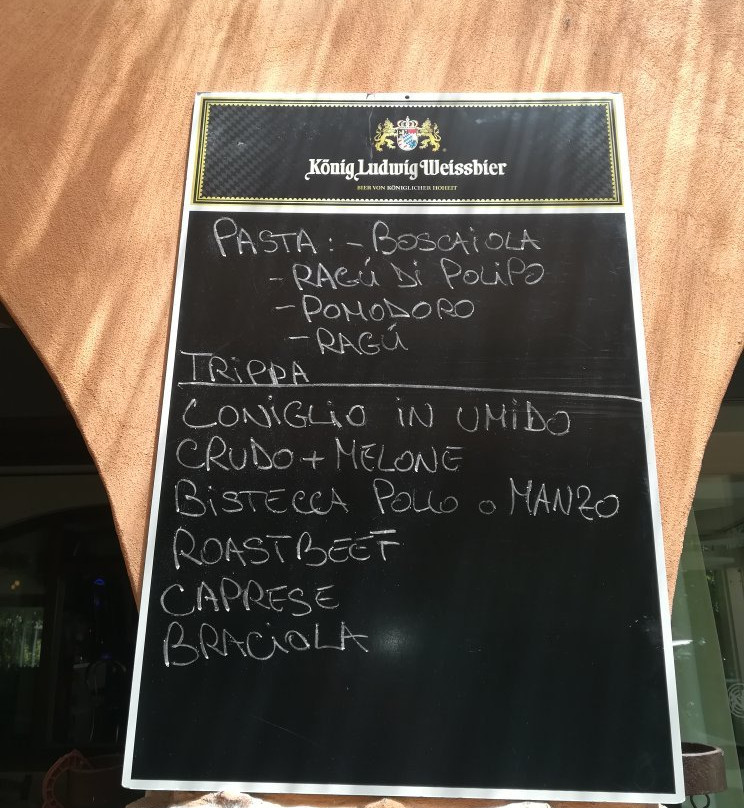 König Ludwig Weissbier
BIER VON KÖNIGLICHER HOHEIT
PASTA: - BOSCAIOLA
- RAGÚ DI POLIPO
- POMODORO
- RAGÚ
TRIPPA
CONIGLIO IN UMIDO
CRUDO + MELONE
BISTECCA POLLO O MANZO
ROASTBEEF
CAPRESE
BRACIOLA